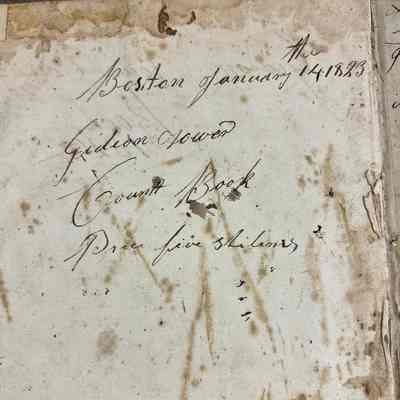 Boston January the 14 1823
Gideon Tower
Count Book
Price five shilings